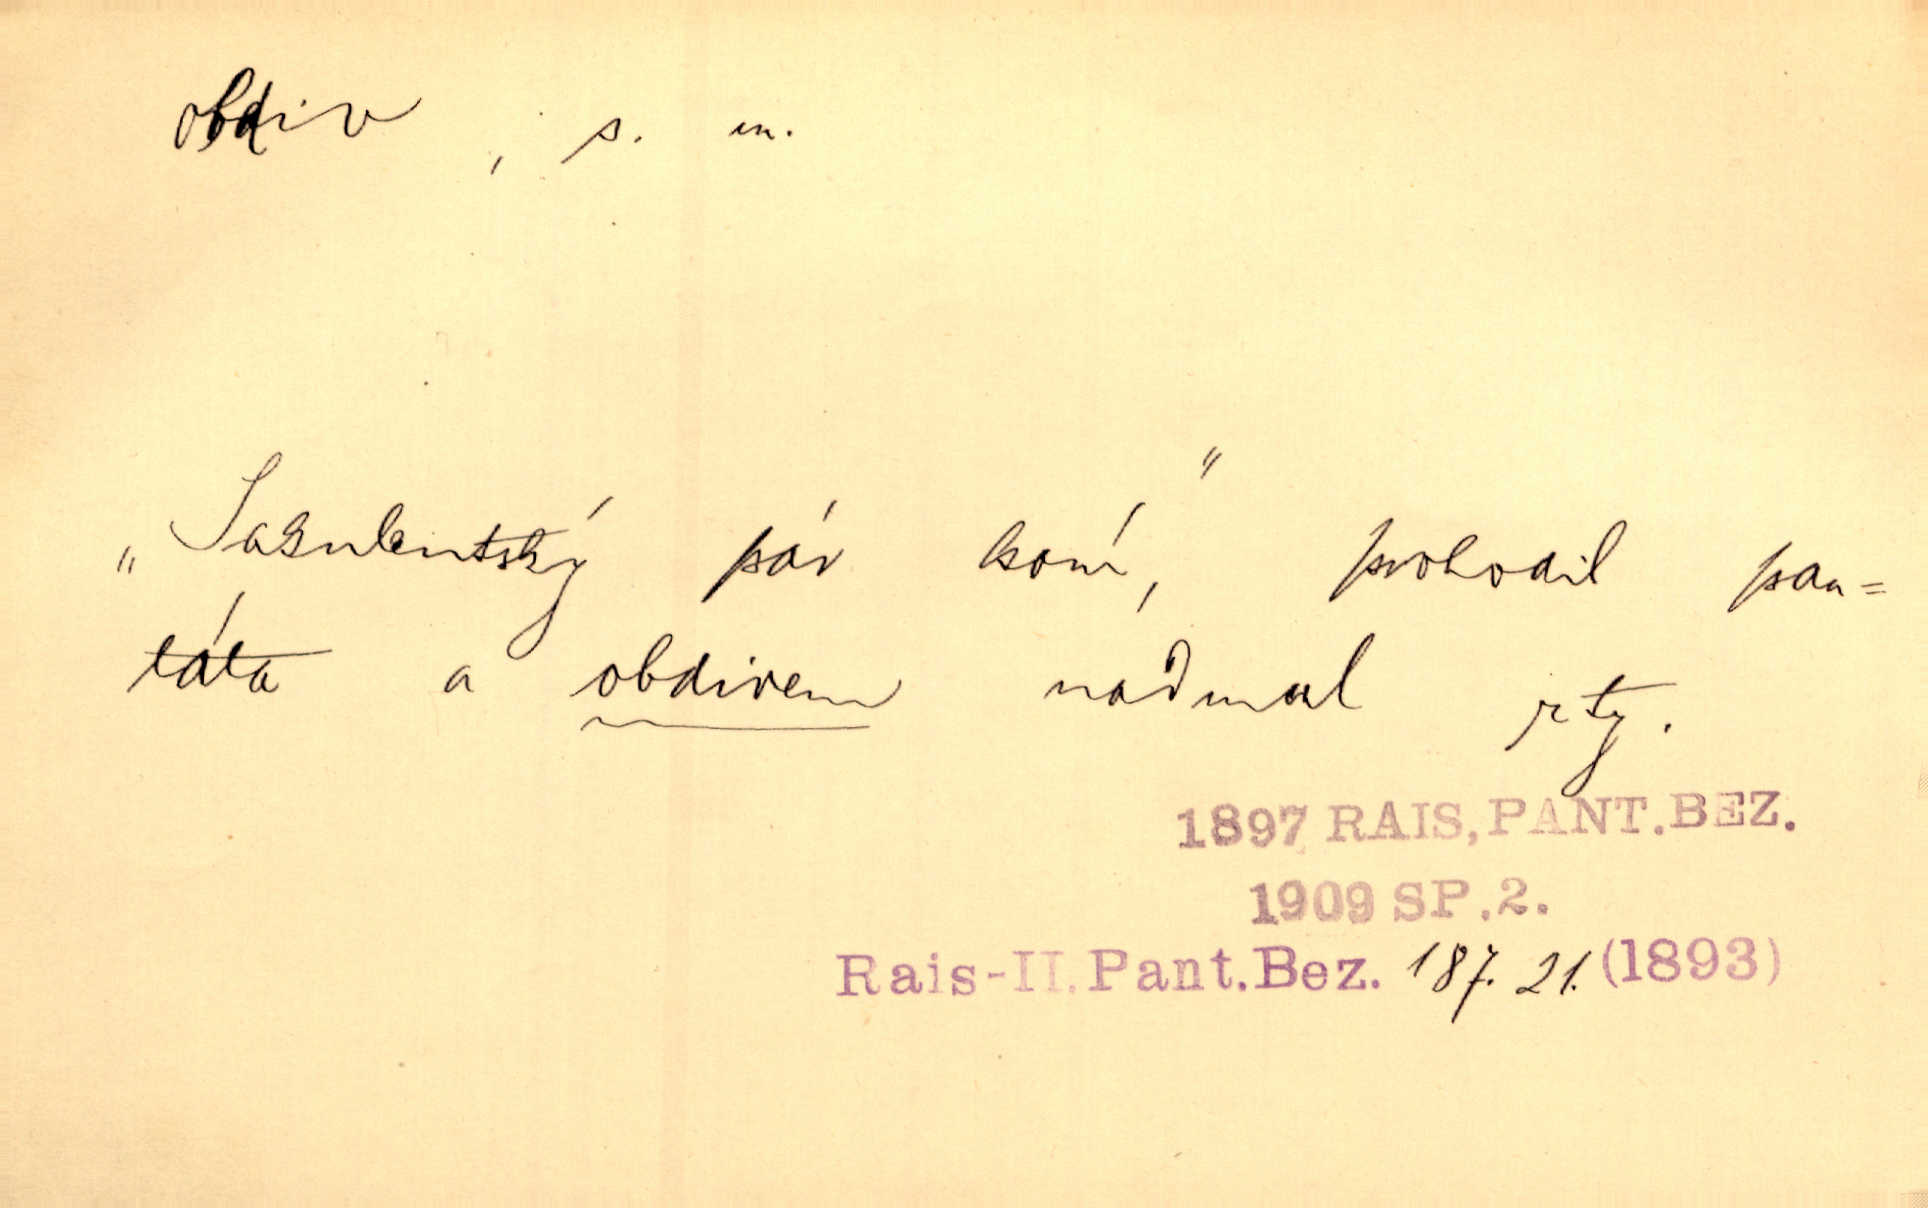 obdiv , s. m.
„Sakulentský pár koní,“ prohodil pan=
táta a obdivem nadmul rty.
1897 RAIS, PANT. BEZ.
1909 SP. 2.
Rais-II. Pant. Bez. 187. 21. (1893)